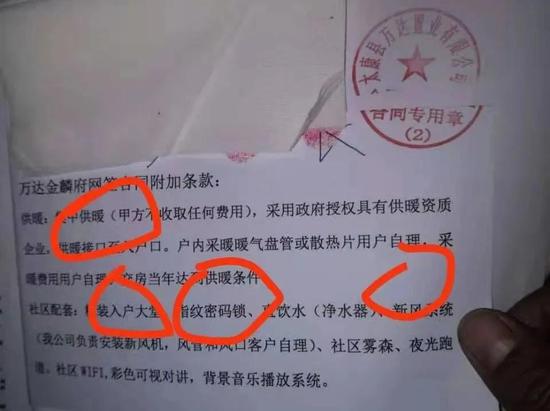 太康县万达置业有限公司
合同专用章
(2)
万达金麟府网签合同附加条款：
供暖：集中供暖（甲方不收取任何费用），采用政府授权具有供暖资质
企业，供暖接口至入户口。户内采暖暖气盘管或散热片用户自理，采
暖费用用户自理，交房当年达到供暖条件
社区配套：精装入户大堂、指纹密码锁、直饮水（净水器）、新风系统
（我公司负责安装新风机，风管和风口客户自理）、社区雾森、夜光跑
道、社区WIFI,彩色可视对讲，背景音乐播放系统。